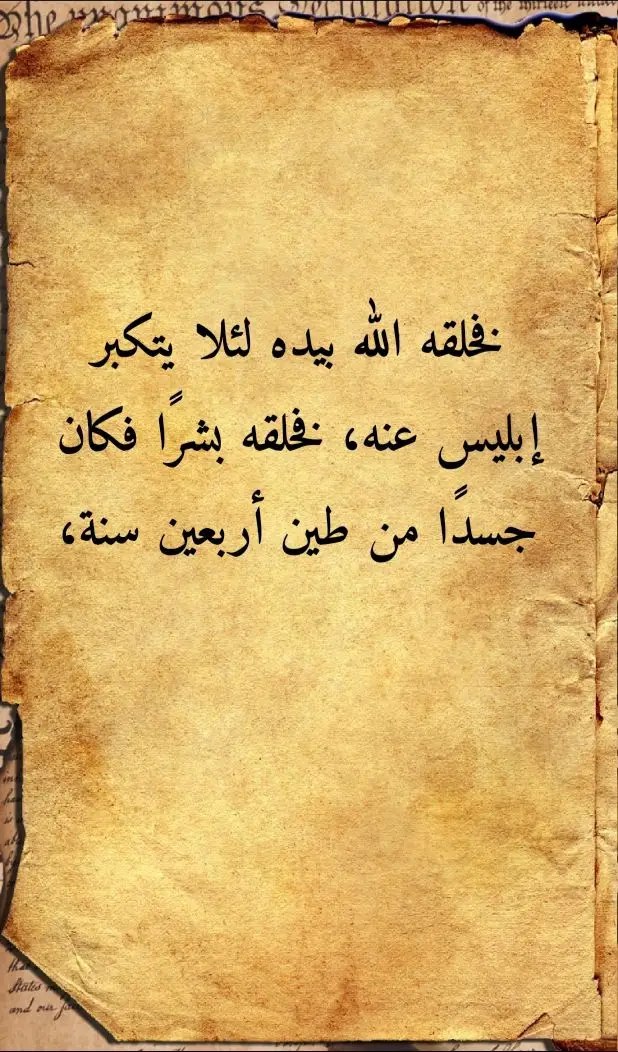 The unanimous Declaration of the thirteen united
فخلقه الله بيده لئلا يتكبر
إبليس عنه، فخلقه بشرًا فكان
جسدًا من طين أربعين سنة،
States
and our